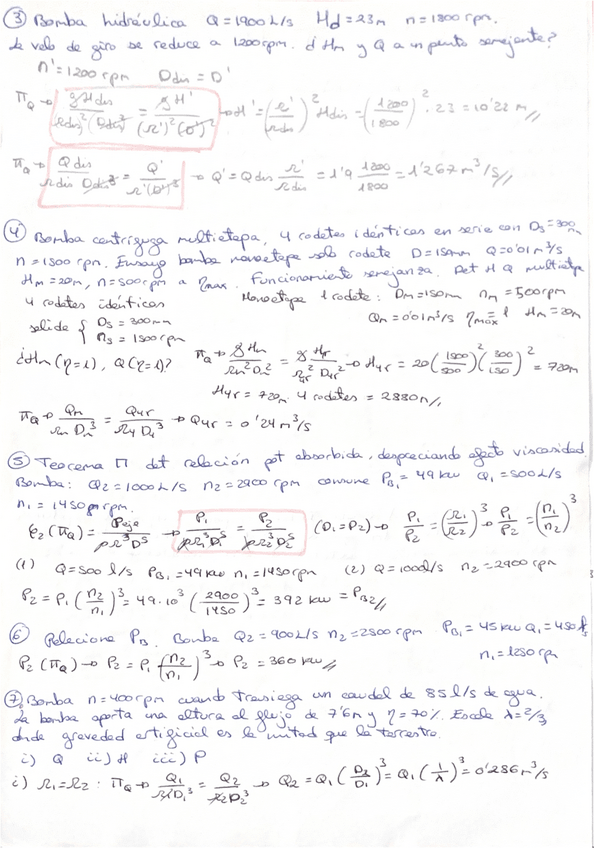 ③ Bomba hidráulica Q = 1900 L/s Hd = 23m n = 1800 rpm.
La velo de giro se reduce a 1200 rpm. ¿Hm y Q a un punto semejante?
n' = 1200 rpm Ddis = D'
πQ → gHdis/(Ωdis)²(Ddis)² = gH'/(Ω')²(D')² → H' = (Ω'/Ωdis)² Hdis = (1200/1800)² · 23 = 10'22 m //
πQ → Qdis/Ωdis Ddis³ = Q'/Ω'(D')³ → Q' = Qdis Ω'/Ωdis = 1'9 1200/1800 = 1'267 m³/s //
④ Bomba centrífuga multietapa, 4 rodetes idénticos en serie con Ds = 300mm
n = 1500 rpm. Ensayo bomba monoetapa solo rodete D = 150mm Q = 0'01 m³/s
Hm = 20m, n = 500 rpm a ηmax. Funcionamiento semejanza. Det H Q multietapa
4 rodetes idénticos
Monoetapa 1 rodete: Dm = 150mm nm = 500rpm
salida { Ds = 300mm
ns = 1500 rpm
Qm = 0'01 m³/s ηmáx = 1 Hm = 20m
¿Hm (η=1), Q (η=1)? πQ → gHm/Ωm² Dm² = gH4r/Ω4r² D4r² → H4r = 20 (1500/500)² (300/150)² = 720m
H4r = 720m 4 rodetes = 2880m //
πQ → Qm/Ωm Dm³ = Q4r/Ω4 D4³ → Q4r = 0'24 m³/s
⑤ Teorema Π det relación pot absorbida, despreciando efecto viscosidad
Bomba: Q2 = 1000 L/s n2 = 2900 rpm consume PB1 = 49 kw Q1 = 500 L/s
n1 = 1450 rpm.
φ2 (πQ) = Peje/ρΩ³D⁵ → P1/ρΩ1³D1⁵ = P2/ρΩ2³D2⁵ (D1 = D2) → P1/P2 = (Ω1/Ω2)³ → P1/P2 = (n1/n2)³
(1) Q = 500 l/s PB1 = 49 kw n1 = 1450 rpm (2) Q = 1000 l/s n2 = 2900 rpm
P2 = P1 (n2/n1)³ = 49·10³ (2900/1450)³ = 392 kw = PB2 //
⑥ Relacione PB. Bomba Q2 = 900 L/s n2 = 2500 rpm PB1 = 45 kw Q1 = 450 l/s
n1 = 1250 rpm
P2 (πQ) → P2 = P1 (n2/n1)³ → P2 = 360 kw //
⑦ Bomba n = 400 rpm cuando trasiega un caudal de 85 l/s de agua.
La bomba aporta una altura al flujo de 7'6m y η = 70%. Escala λ = 2/3
donde gravedad artificial es la mitad que la terrestre.
i) Q ii) H iii) P
i) Ω1 = Ω2 : πQ → Q1/Ω1D1³ = Q2/Ω2D2³ → Q2 = Q1 (D2/D1)³ = Q1 (1/λ)³ = 0'286 m³/s